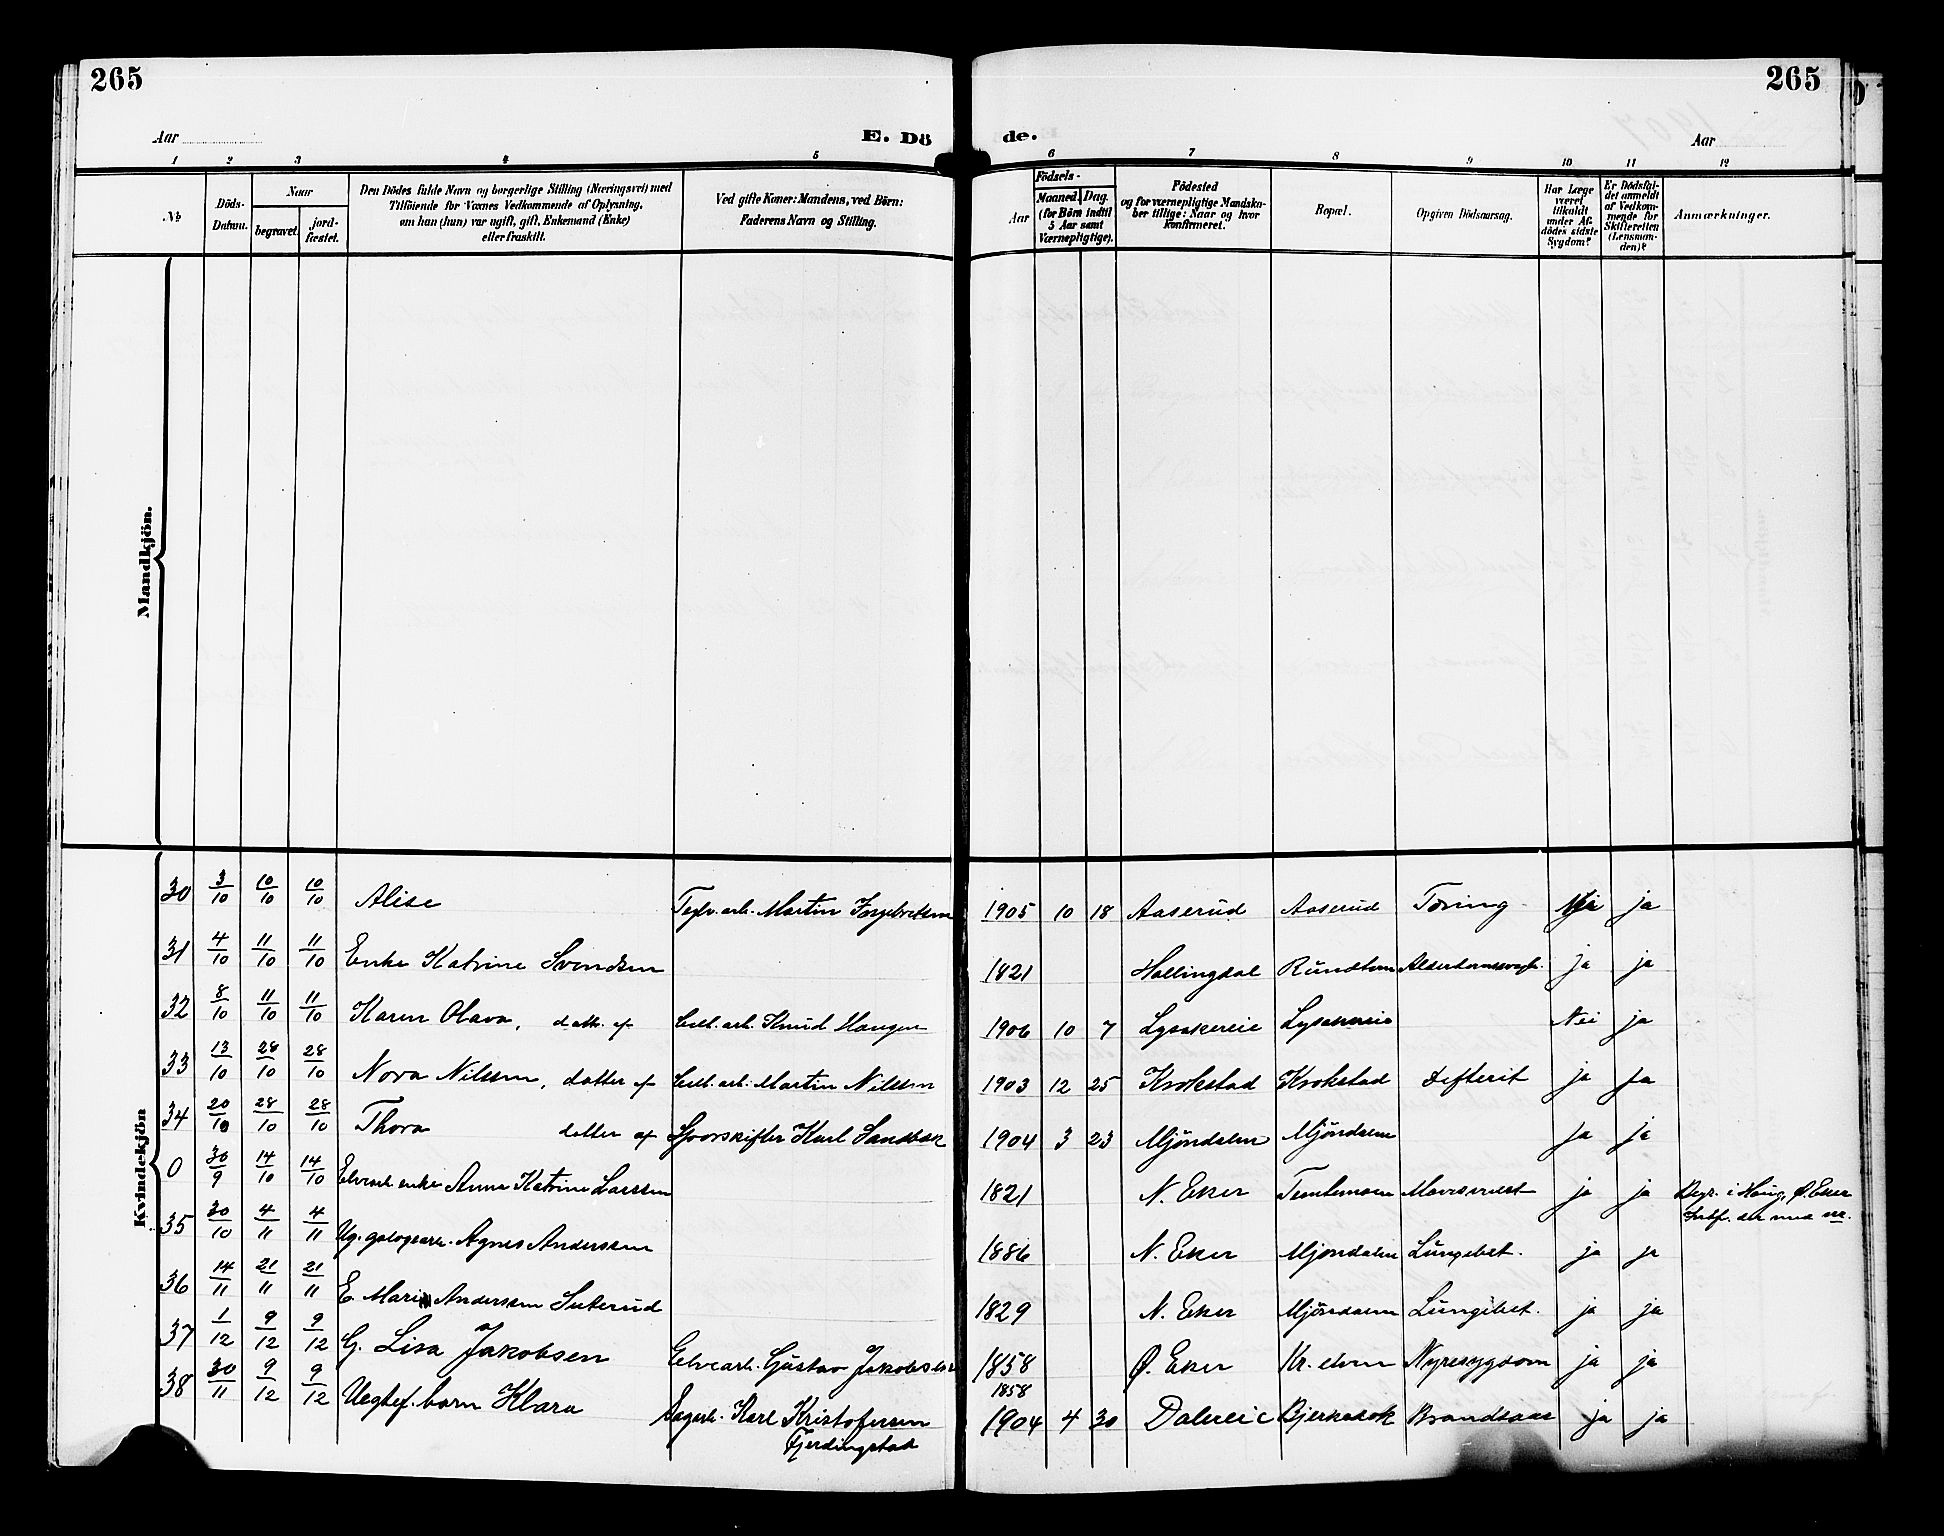 265
265
Aar
E. Dö
de.
Aar
1 2 3 4 5 6 7 8 9 10 11 12
№
Döds-
Datum.
Naar
begravet.
jord-
fæstet.
Den Dödes fulde Navn og borgerlige Stilling (Næringsvei) med
Tilföiende for Voxnes Vedkommende af Oplysning,
om han (hun) var ugift, gift, Enkemand (Enke)
eller fraskilt.
Ved gifte Koner: Mandens, ved Börn:
Faderens Navn og Stilling.
Födsels-
Aar
Maaned. Dag.
(for Börn indtil
5 Aar samt
Værnepligtige).
Födested
og for værnepligtige Mandska-
ber tillige: Naar og hvor
konfirmeret.
Bopæl.
Opgiven Dödsaarsag.
Har Læge
været
tilkaldt
under Af-
dödes sidste
Sygdom?
Er Dödsfal-
det anmeldt
af Vedkom-
mende for
Skifteretten
(Lensman-
den)?
Anmærkninger.
Mandkjön.
Kvindekjön
30 3/10 10/10 10/10 Alise Teglv. arb. Martin Ingebretsen 1905 10 18 Aaserud Aaserud Tæring ja
31 4/10 11/10 11/10 Enke Katrine Svendsen 1821 Hallingdal Rundtom Alderdomssvagh. ja ja
32 8/10 11/10 11/10 Karen Olava, datt. af Cell. arb. Knud Haugen 1906 10 7 Lysakereie Lysakereie Nei ja
33 13/10 28/10 28/10 Nora Nilssen, datter af Cell. arb. Martin Nilssen 1903 12 25 Krokstad Krokstad Difterit ja ja
34 20/10 28/10 28/10 Thora datter af Sporskifter Karl Sandbæk 1904 3 23 Mjöndalen Mjöndalen ja ja
0 30/9 14/10 14/10 Elvearb. enke Anne Katrine Larssen 1821 N. Eker Tomtemoen Mavesvulst ja ja Begr. i Haug, Ø. Eker
Indf. der med nr.
35 30/10 4/11 4/11 Ug. Agnes Anderssen 1886 N. Eker Mjöndalen Lungebet. ja ja
36 14/11 21/11 21/11 E. Marie Anderssen Seterud 1829 N. Eker Mjöndalen Lungebet. ja ja
37 1/12 9/12 9/12 G. Lisa Jakobsen Elvearb. Gustav Jakobsen 1858 Ø. Eker Kr. elven Nyresygdom ja ja
1858
38 30/11 9/12 9/12 Uegtef. barn Klara Sagarb. Karl Kristofersen 1904 4 30 Dalereie Bjerkasok Brandsaar ja ja
Fjerdingstad